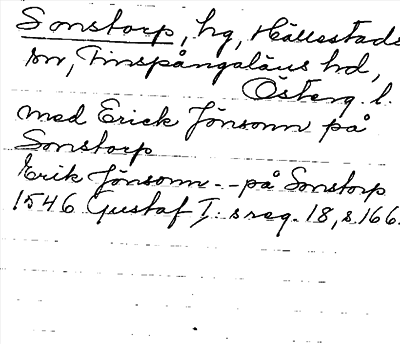 Sonstorp, hg, Hällestads
sn, Finspångaläns hd,
Österg. l.
med Erick Jönsonn på
Sonstorp
Erik Jönsonn - - på Sonstorp
1546 Gustaf I: s reg. 18, s 166.